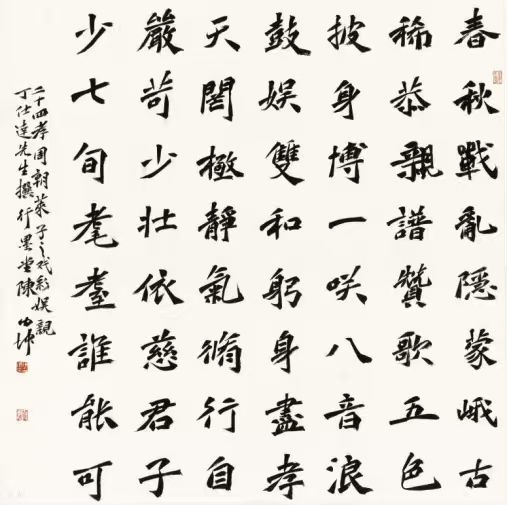 春秋戰亂隱蒙峨古
稀恭親譜贊歌五色
披身博一咲八音浪
鼓娱雙和躬身盡孝
天閤極靜氣脩行自
嚴苛少壯依慈君子
少七旬耄耋誰能可
二十四孝周朝萊子之戏彩娱親
丁仕達先生撰行墨堂陳